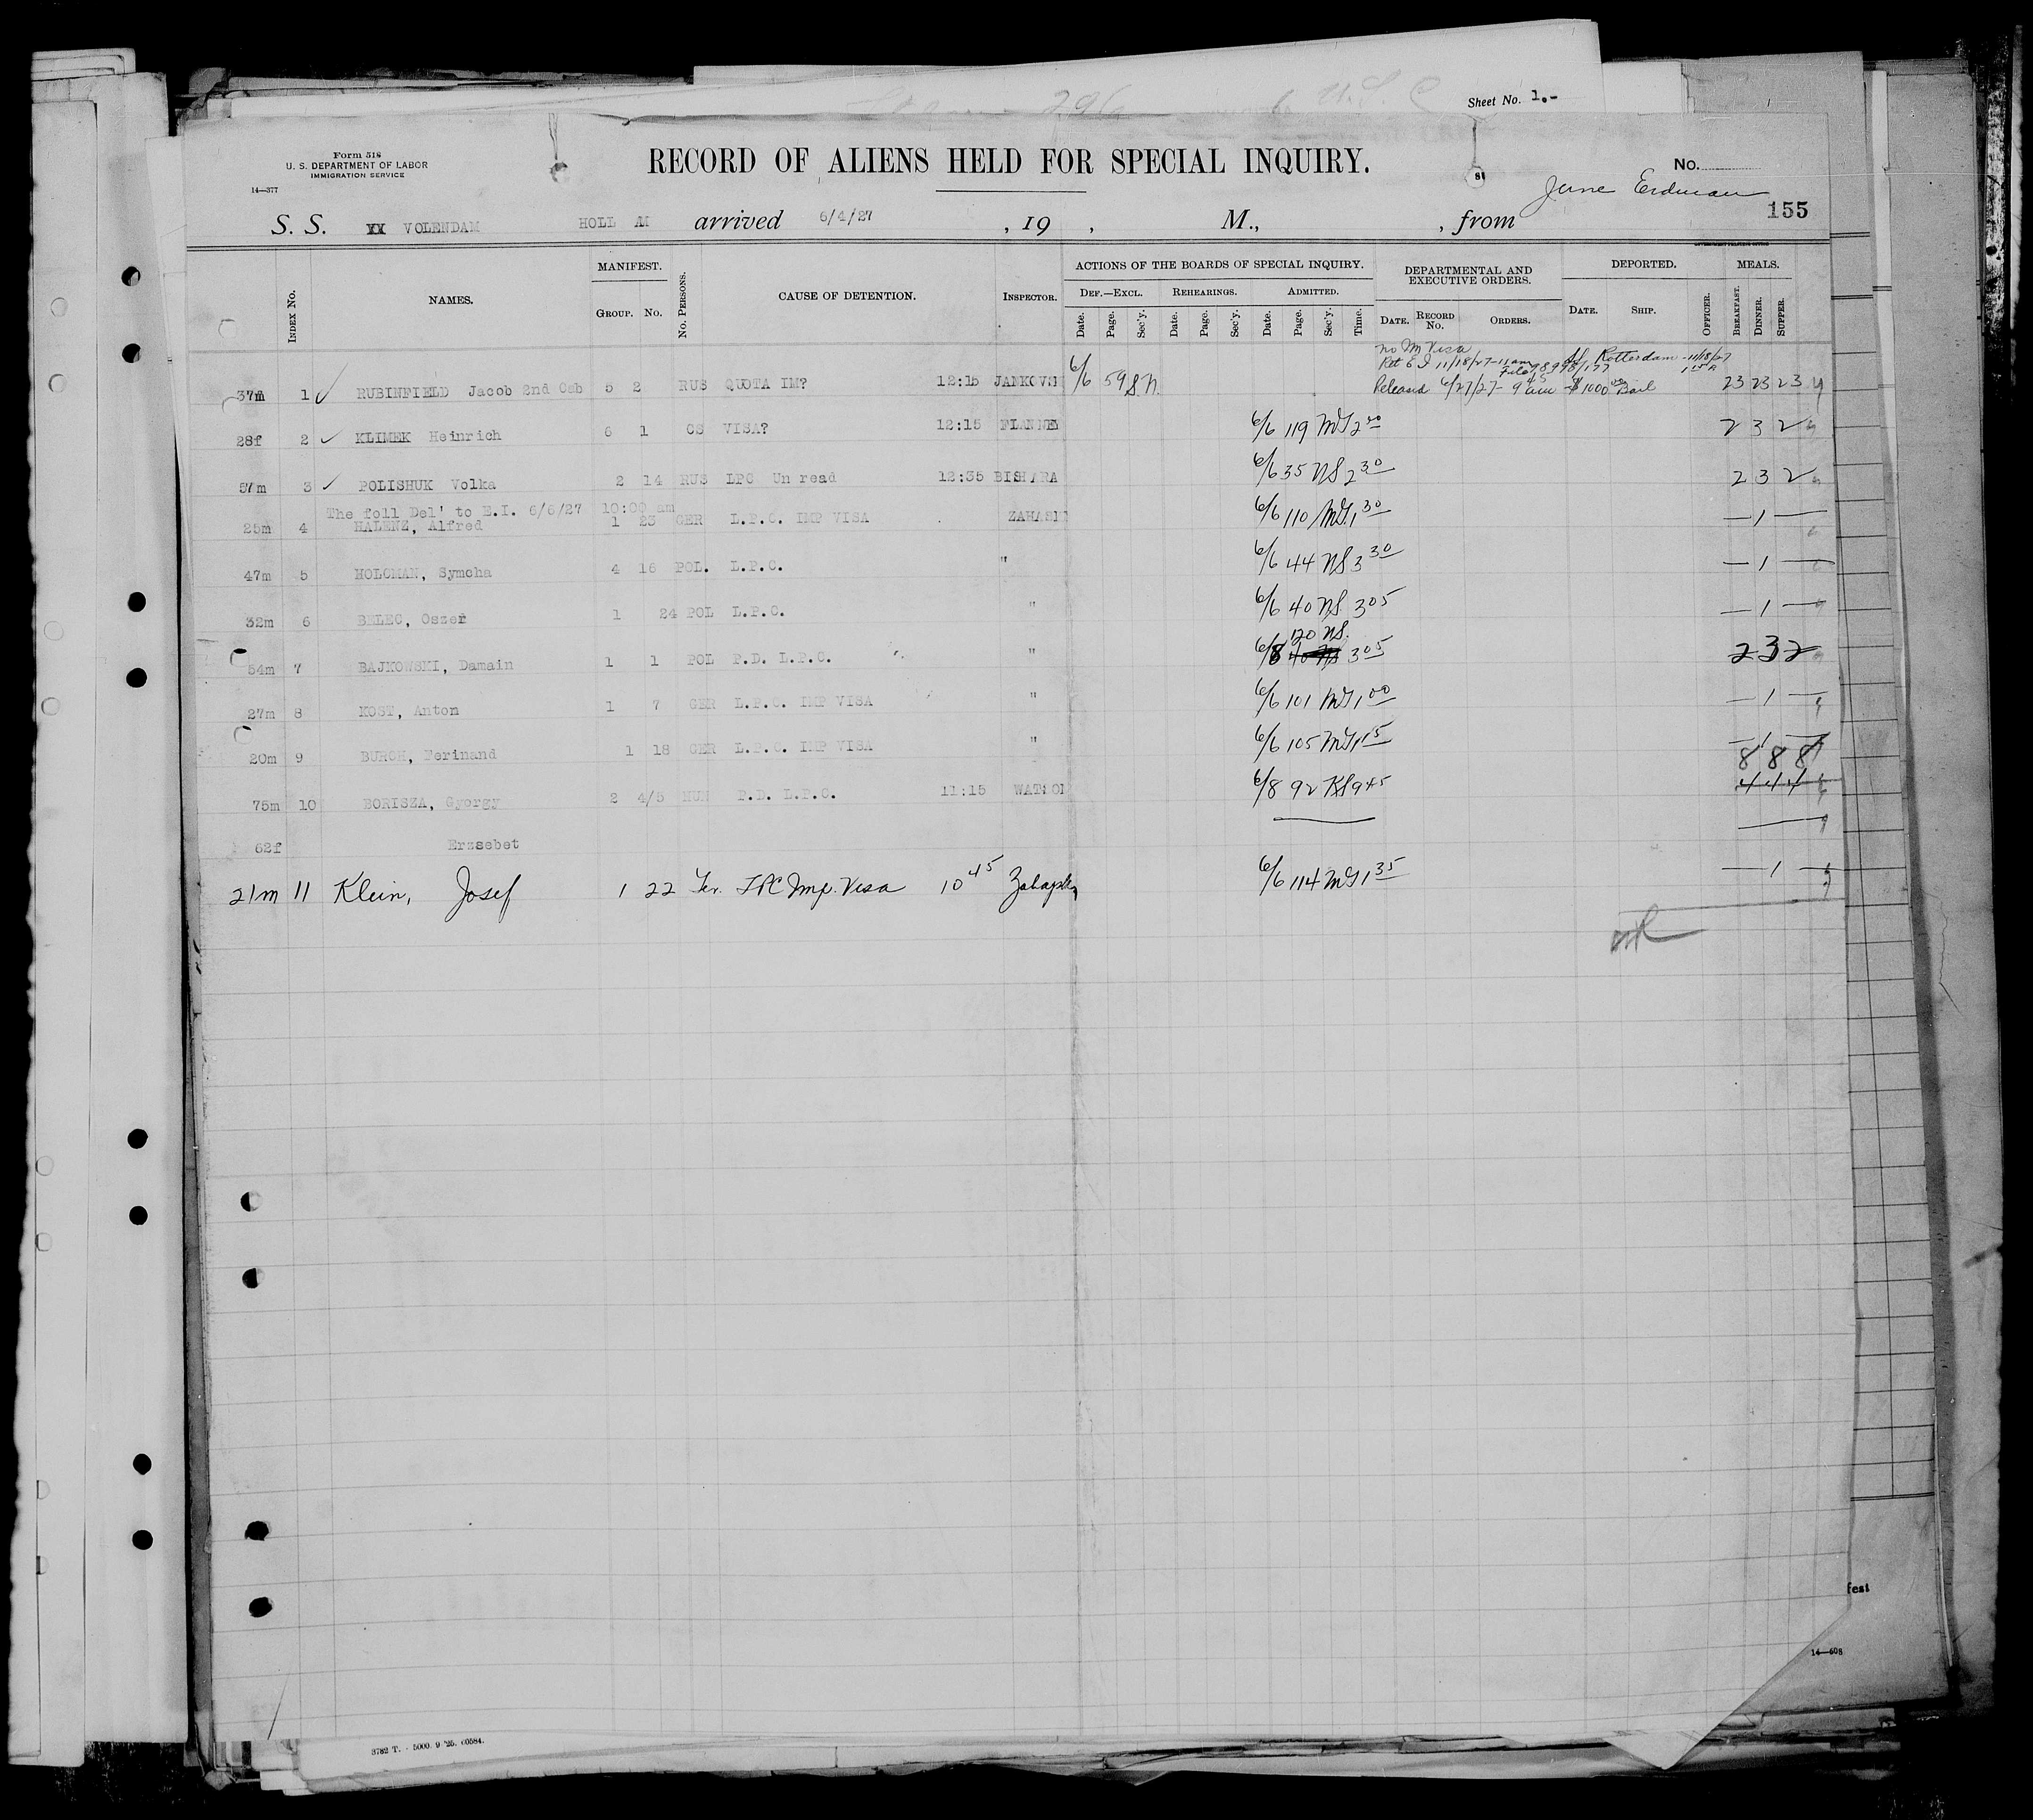 Sheet No. 1.-
Form 518
U. S. DEPARTMENT OF LABOR
IMMIGRATION SERVICE
14—377
RECORD OF ALIENS HELD FOR SPECIAL INQUIRY.
No.
81
155
S. S. VOLENDAM HOLL AM arrived 6/4/27, 19 , M., , from
INDEX No. NAMES. MANIFEST. GROUP. No. No. PERSONS. CAUSE OF DETENTION. INSPECTOR. ACTIONS OF THE BOARDS OF SPECIAL INQUIRY. DEF.—EXCL. Date. Page. Sec'y. REHEARINGS. Date. Page. Sec'y. ADMITTED. Date. Page. Sec'y. Time. DEPARTMENTAL AND EXECUTIVE ORDERS. DATE. RECORD No. ORDERS. DEPORTED. DATE. SHIP. OFFICER. MEALS. BREAKFAST. DINNER. SUPPER.
no Im Visa
Ret E I 11/18/27-11am Rotterdam -11/18/27
37m 1 ✓ RUBINFIELD Jacob 2nd Cab 5 2 RUS QUOTA IM? 12:15 JANKOVS 6/6 59 S.N. Released 6/27/27- 9 45 am $1000 00 Bail 23 23 23
28f 2 ✓ KLIMEK Heinrich 6 1 CS VISA? 12:15 FLANNEY 6/6 119 MG 2 00 2 3 2
57m 3 ✓ POLISHUK Volka 2 14 RUS LPC Un read 12:35 BISHARA 6/6 35 NS 2 30 2 3 2
The foll Del' to E.I. 6/6/27 10:00 am
25m 4 HALENZ, Alfred 1 23 GER L.P.C. IMP VISA 6/6 110 MG 1 30 — 1 —
47m 5 HOLCMAN, Symcha 4 16 POL. L.P.C. " 6/6 44 NS 3 30 — 1 —
32m 6 BELEC, Oszer 1 24 POL L.P.C. " 6/6 40 NS. 3 05 — 1 —
120 NS.
54m 7 BAJKOWSKI, Damain 1 1 POL P.D. L.P.C. " 6/8 3 05 2 3 2
27m 8 KOST, Anton 1 7 GER L.P.C. IMP VISA " 6/6 101 MG 1 00 — 1 —
20m 9 BURCH, Ferinand 1 18 GER L.P.C. IMP VISA " 6/6 105 MG 1 15 — 1 —
8 8 8
75m 10 BORISZA, Gyorgy 2 4/5 HUN P.D. L.P.C. 11:15 WATSON 6/8 92 KS 9 45 4 4 4
62f Erzsebet
21m 11 Klein, Josef 1 22 Ger. LPC Imp. Visa 10 45 6/6 114 MG 1 35 — 1 —
fest
14—608
3782 T. - 5000. 9 '25. 60584.